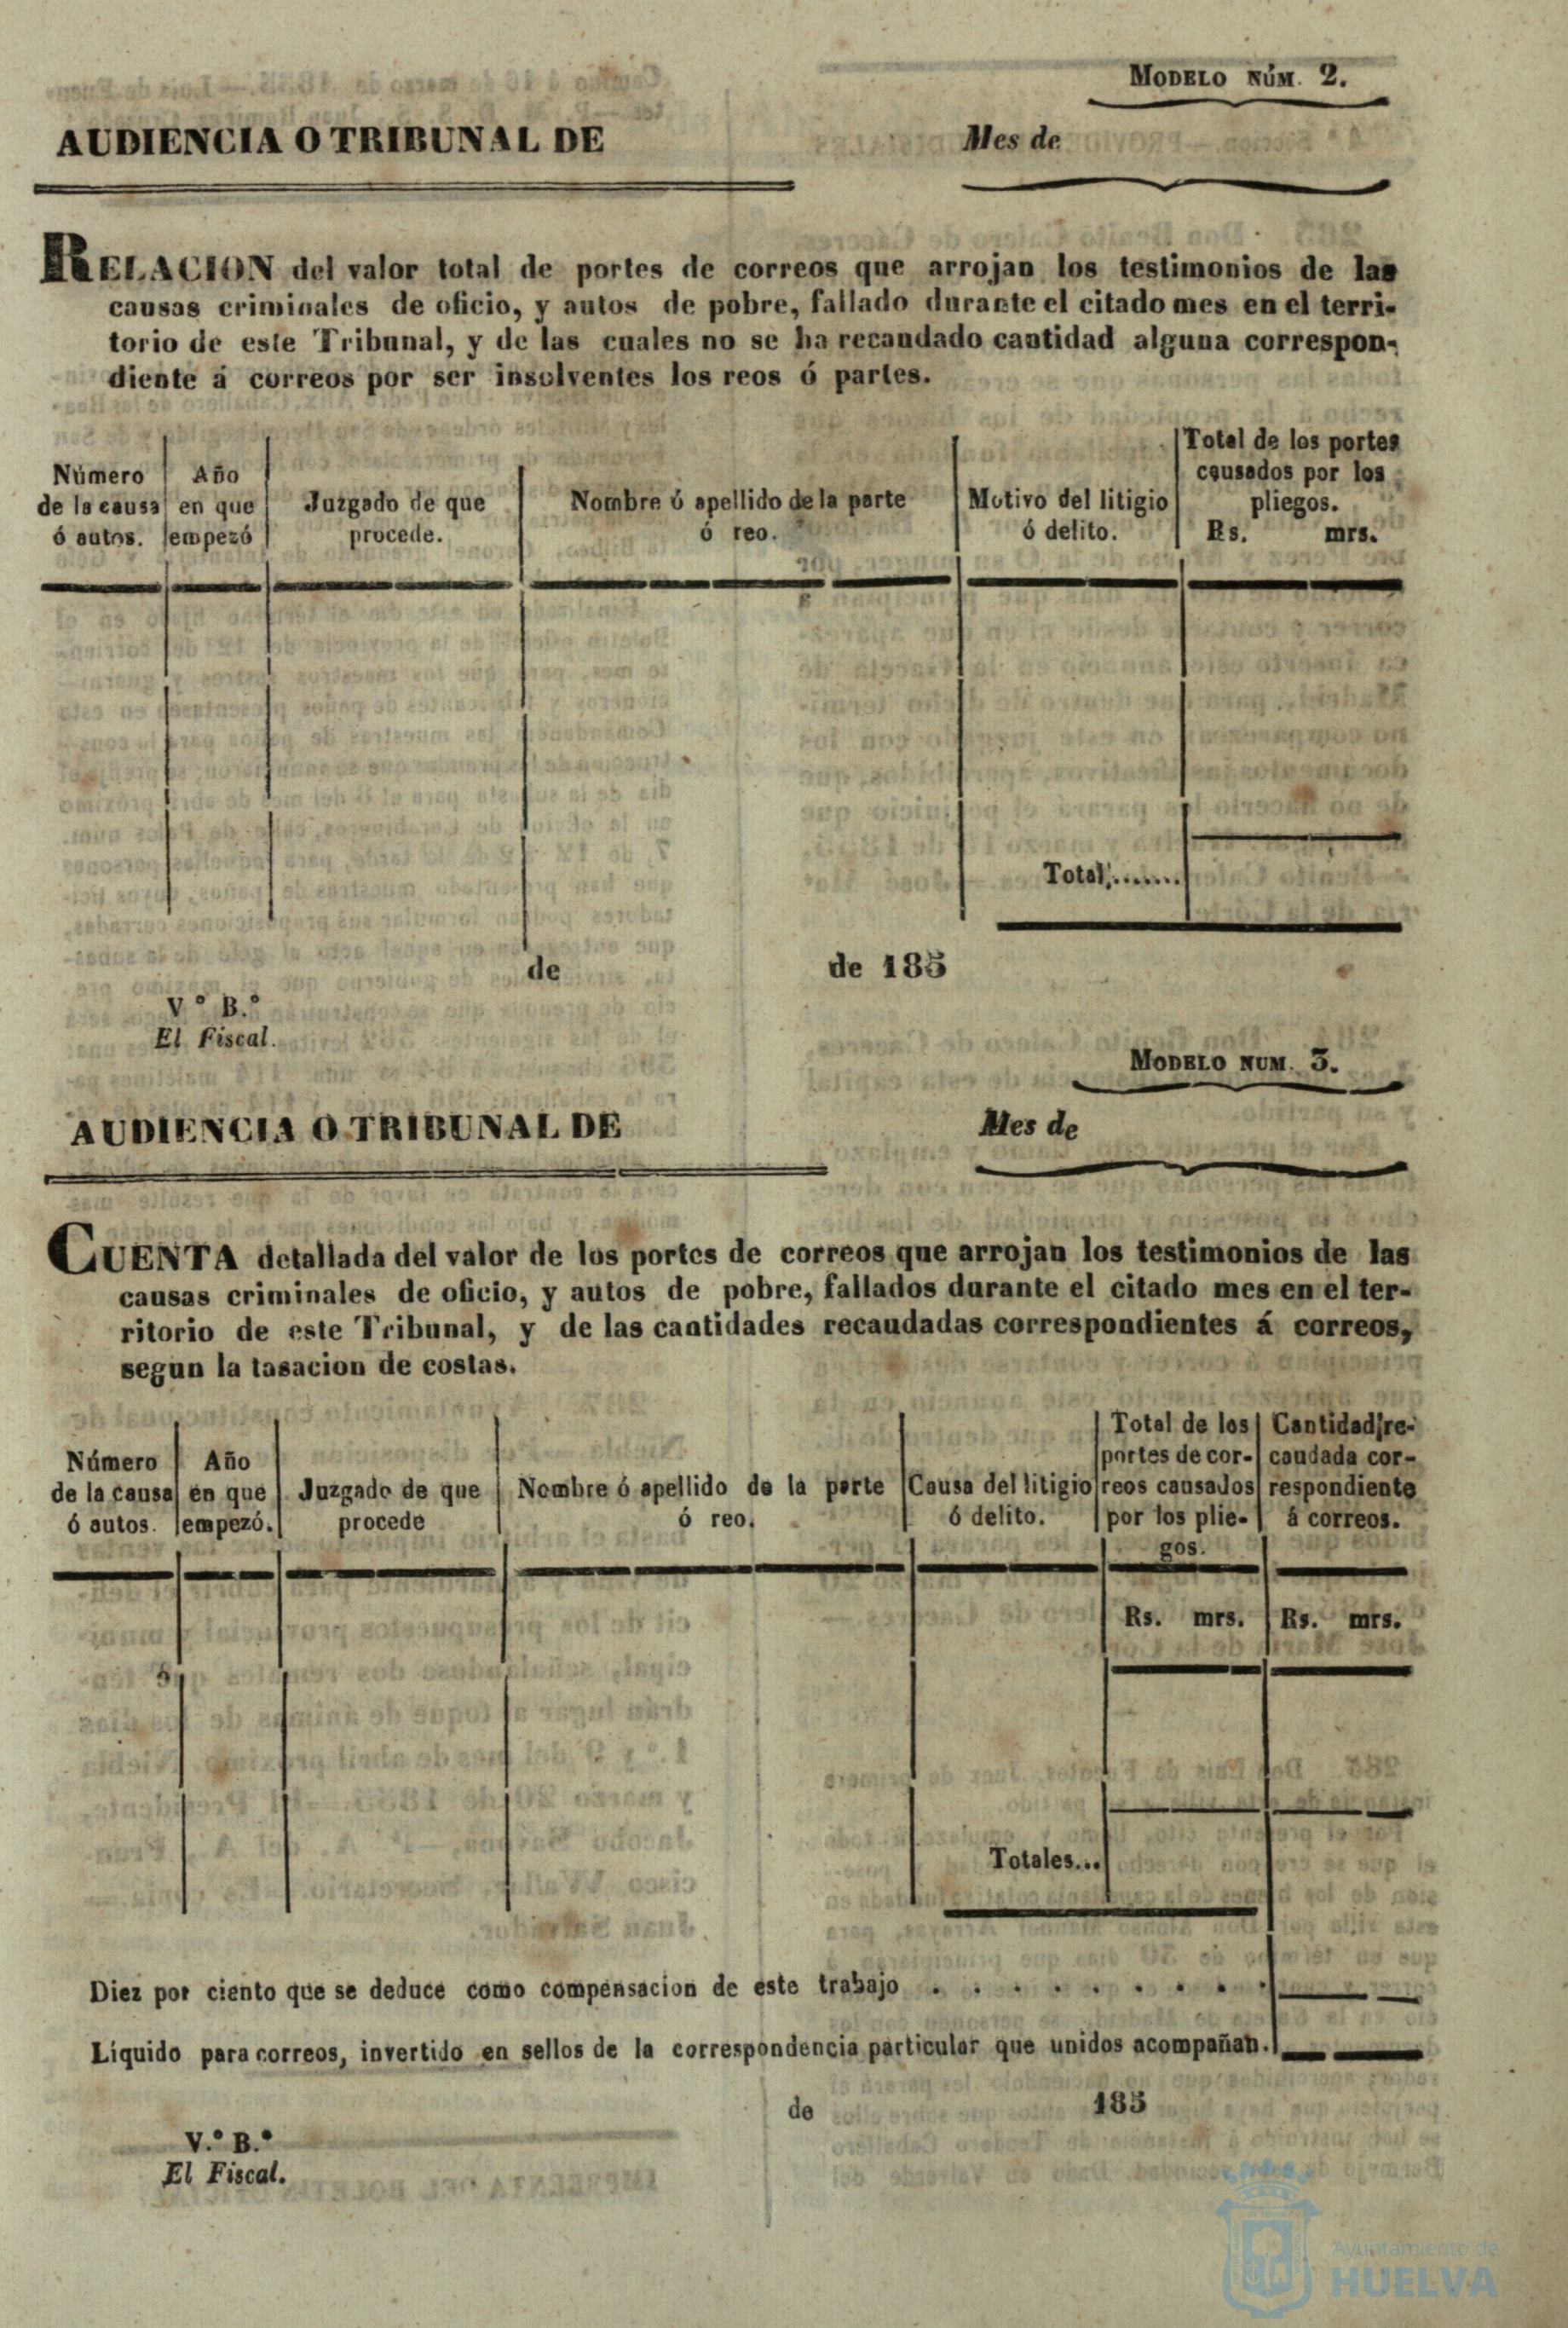 MODELO NÚM. 2.
AUDIENCIA O TRIBUNAL DE
Mes de
RELACION del valor total de portes de correos que arrojan los testimonios de las
causas criminales de oficio, y autos de pobre, fallado durante el citado mes en el terri-
torio de este Tribunal, y de las cuales no se ha recaudado cantidad alguna correspon-
diente á correos por ser insolventes los reos ó partes.
Número
de la causa
ó autos.
Año
en que
empezó
Juzgado de que
procede.
Nombre ó apellido de la parte
ó reo.
Motivo del litigio
ó delito.
Total de los portes
causados por los
pliegos.
Rs. mrs.
Total,.......
de de 185
V.º B.º
El Fiscal.
MODELO NUM. 3.
AUDIENCIA O TRIBUNAL DE
Mes de
CUENTA detallada del valor de los portes de correos que arrojan los testimonios de las
causas criminales de oficio, y autos de pobre, fallados durante el citado mes en el ter-
ritorio de este Tribunal, y de las cantidades recaudadas correspondientes á correos,
segun la tasacion de costas.
Número
de la causa
ó autos.
Año
en que
empezó.
Juzgado de que
procede
Nombre ó apellido de la parte
ó reo.
Causa del litigio
ó delito.
Total de los
portes de cor-
reos causados
por los plie-
gos.
Cantidad re-
caudada cor-
respondiente
á correos.
Rs. mrs. Rs. mrs.
Totales...
Diez por ciento que se deduce como compensacion de este trabajo . . . . . . . . .
Líquido para correos, invertido en sellos de la correspondencia particular que unidos acompañan.
de 185
V.º B.º
El Fiscal.
Ayuntamiento de
HUELVA